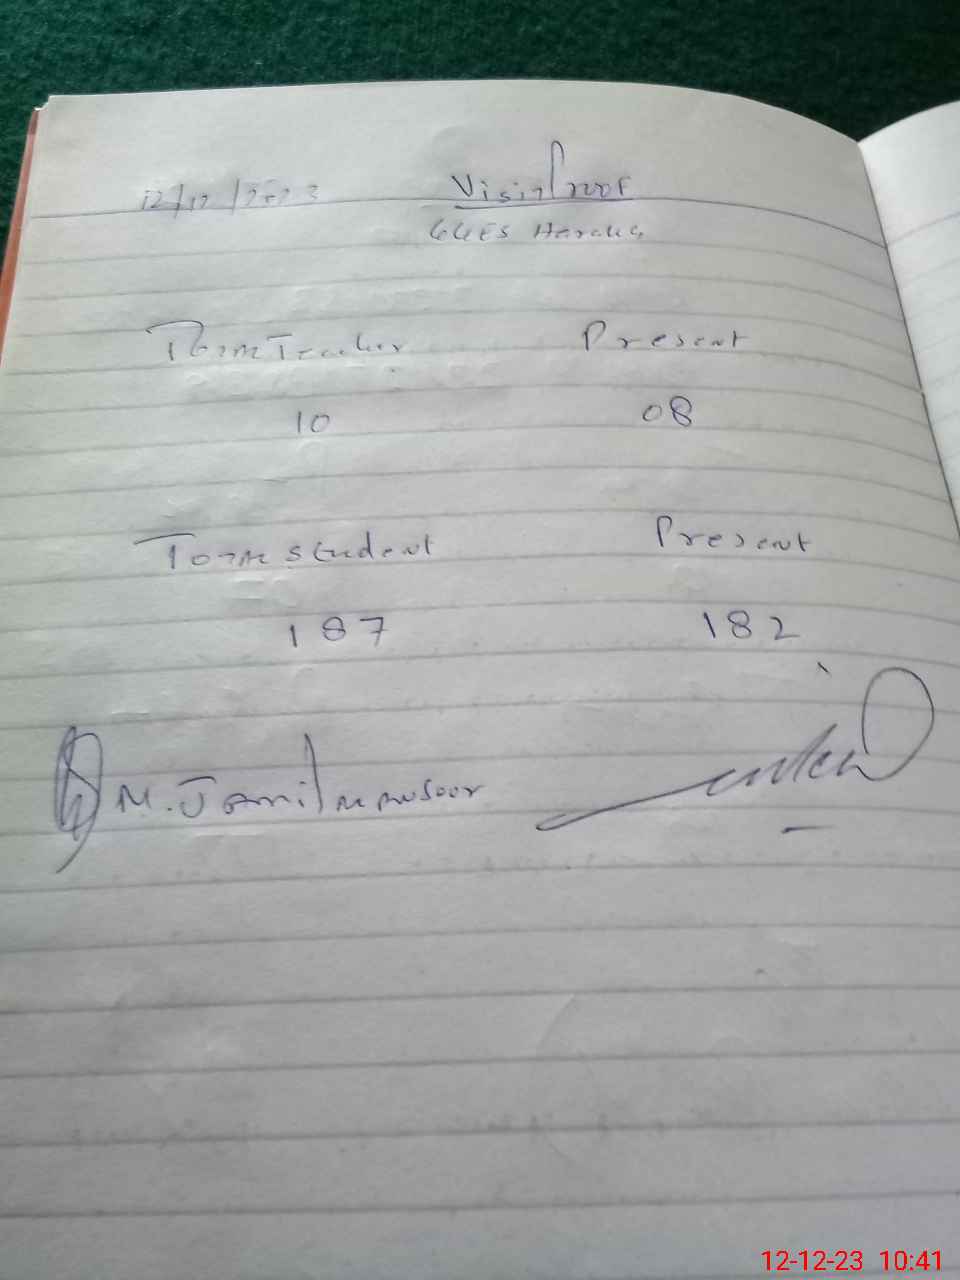 12/12/2023 Visit Proof
GGES
Total Teacher Present
10 08
Total student Present
187 182
M. Jamil Mansoor
12-12-23 10:41